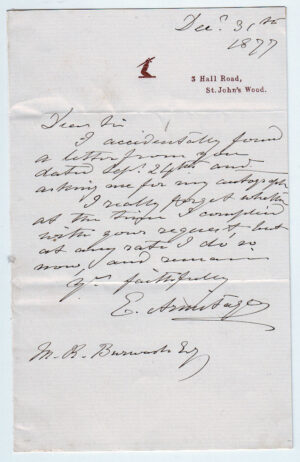 Decr. 31st
1877
3 Hall Road,
St. John's Wood.
Dear Sir
I accidentally found
a letter from you
dated Sep. 24th and
asking me for my autograph
I really forget whether
at the time I complied
with your request but
at any rate I do so
now, and remain
Yrs faithfully
E. Armitage
M. R. Burwash Esq